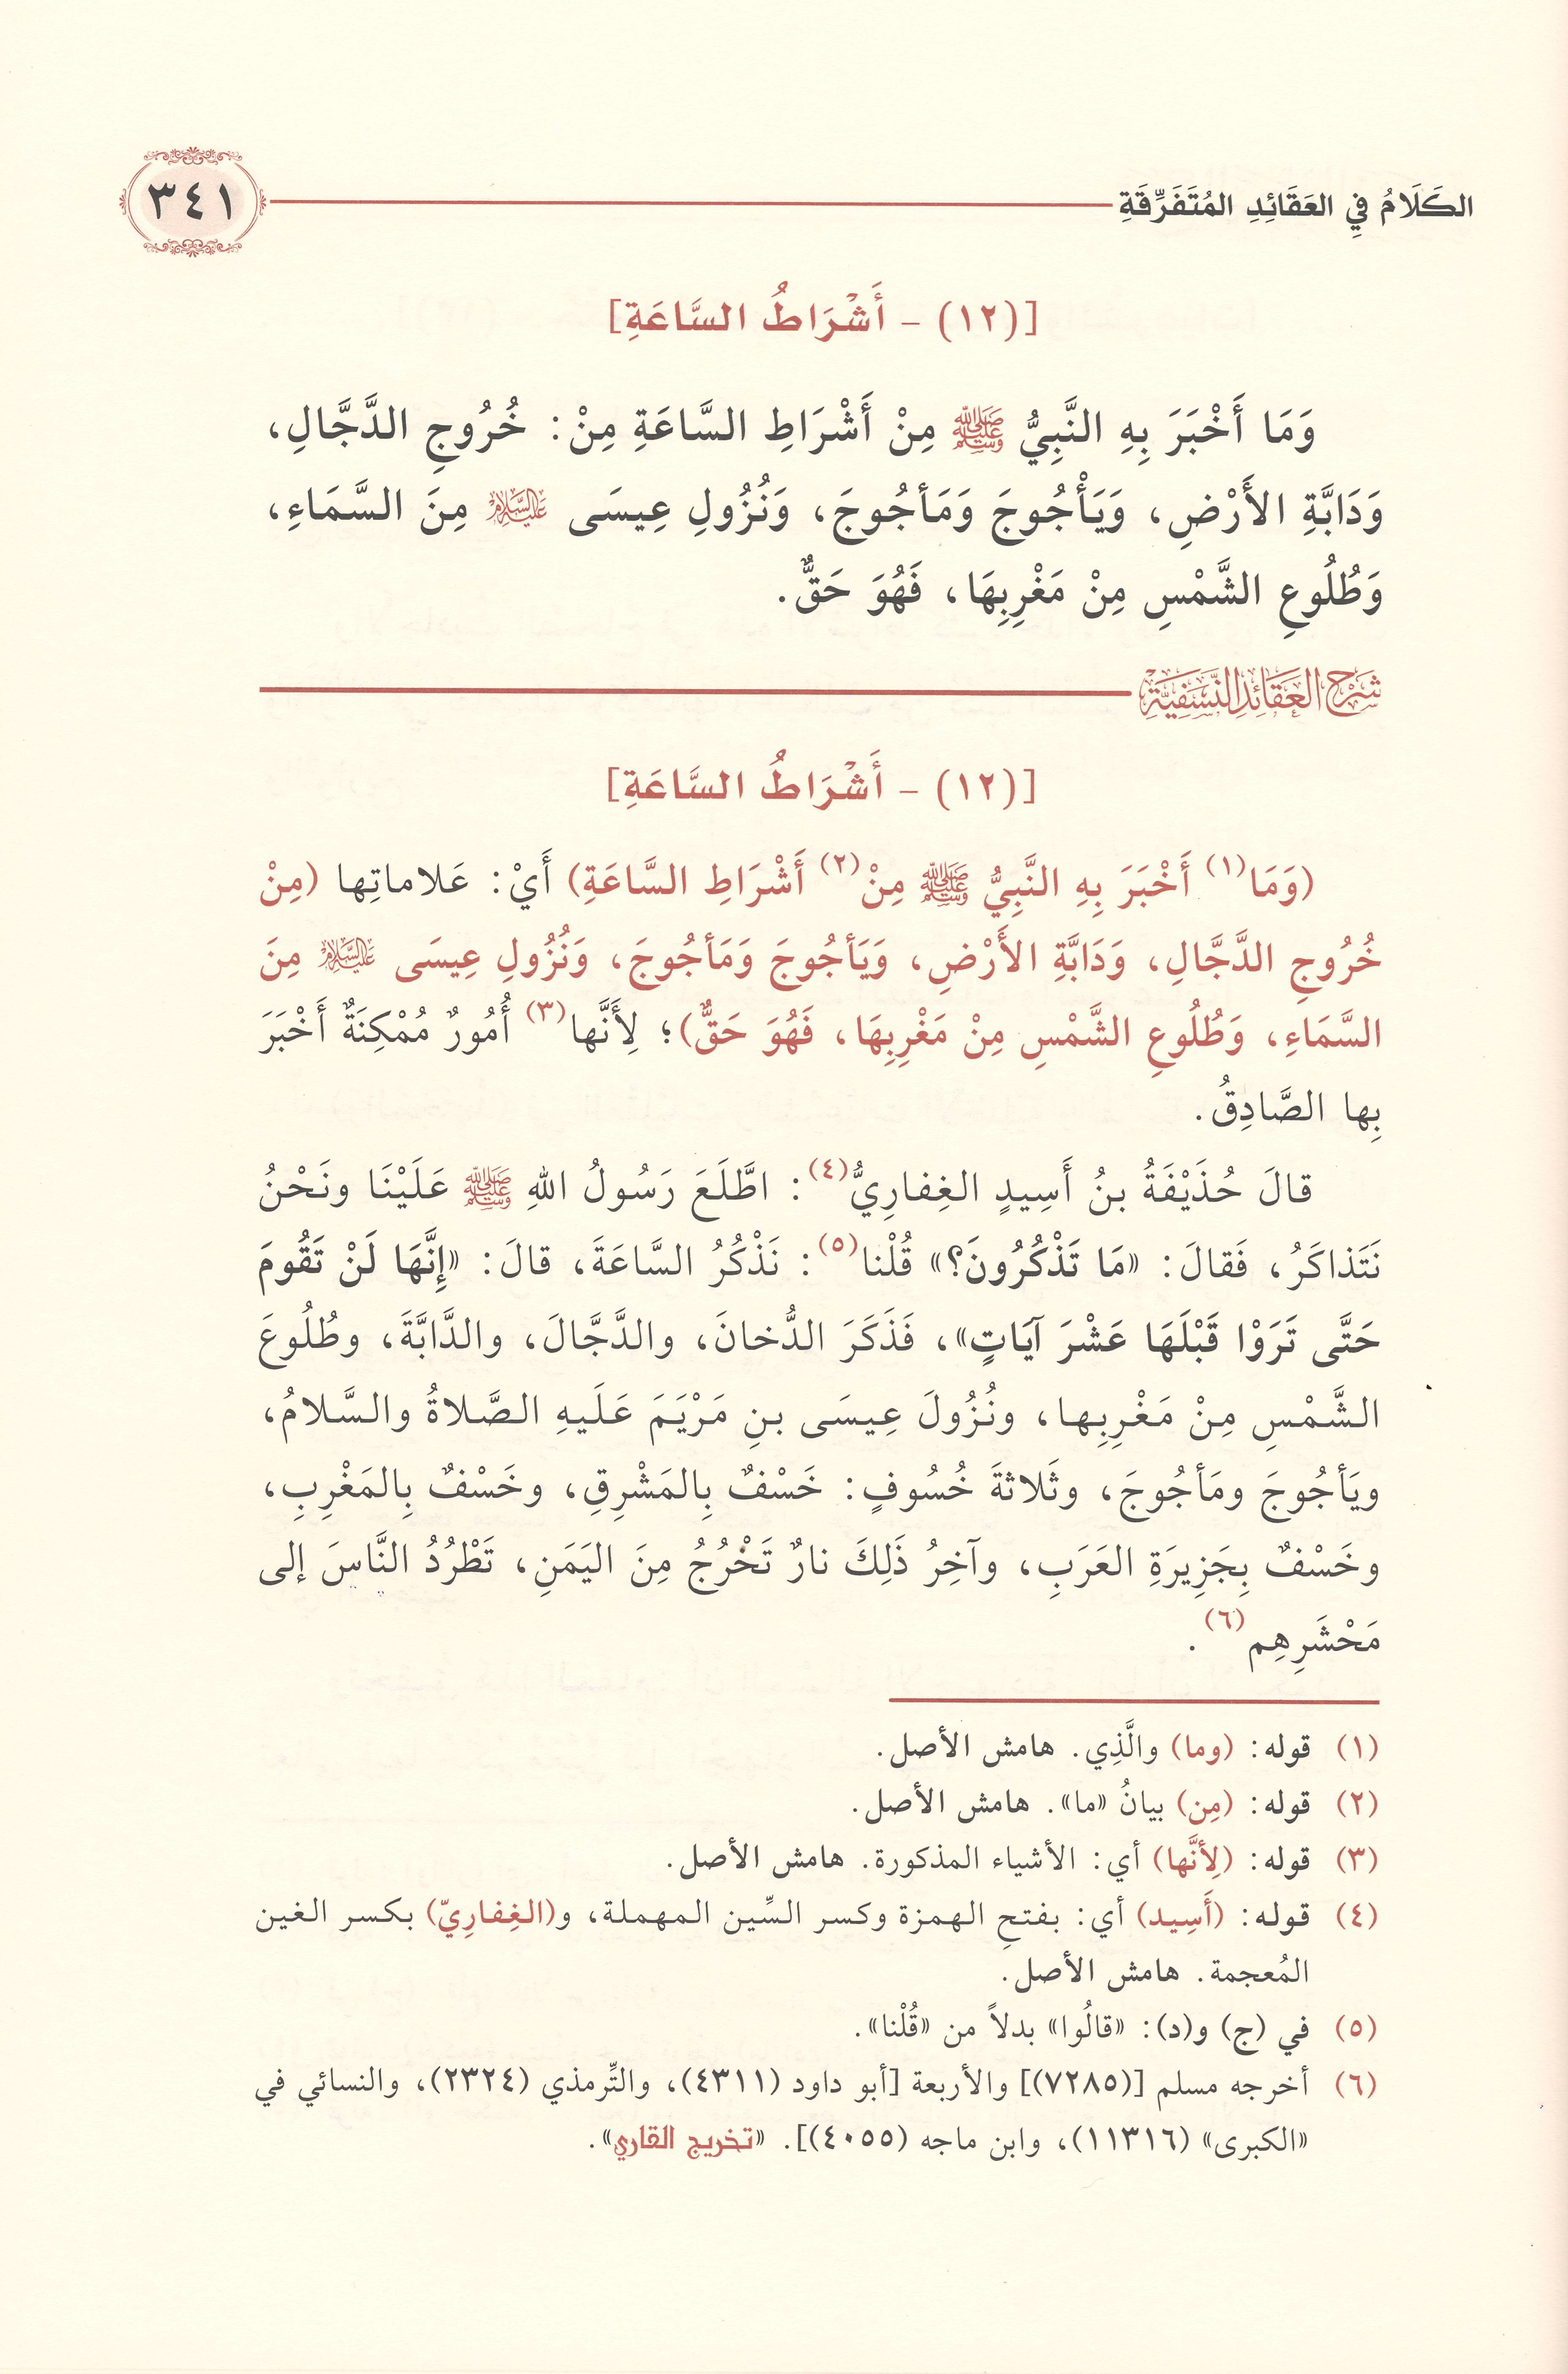 الكَلَامُ فِي العَقَائِدِ المُتَفَرِّقَةِ
٣٤١
[(١٢) - أَشْرَاطُ السَّاعَةِ]
وَمَا أَخْبَرَ بِهِ النَّبِيُّ ﷺ مِنْ أَشْرَاطِ السَّاعَةِ مِنْ: خُرُوجِ الدَّجَّالِ،
وَدَابَّةِ الأَرْضِ، وَيَأْجُوجَ وَمَأجُوجَ، وَنُزُولِ عِيسَى عَلَيْهِ السَّلَامُ مِنَ السَّمَاءِ،
وَطُلُوعِ الشَّمْسِ مِنْ مَغْرِبِهَا، فَهُوَ حَقٌّ.
شَرْحُ العَقَائِدِ النَّسَفِيَّةِ
[(١٢) - أَشْرَاطُ السَّاعَةِ]
(وَمَا(١) أَخْبَرَ بِهِ النَّبِيُّ ﷺ مِنْ(٢) أَشْرَاطِ السَّاعَةِ) أَيْ: عَلاماتِها (مِنْ
خُرُوجِ الدَّجَّالِ، وَدَابَّةِ الأَرْضِ، وَيَأجُوجَ وَمَأجُوجَ، وَنُزُولِ عِيسَى عَلَيْهِ السَّلَامُ مِنَ
السَّمَاءِ، وَطُلُوعِ الشَّمْسِ مِنْ مَغْرِبِهَا، فَهُوَ حَقٌّ)؛ لِأَنَّها(٣) أُمُورٌ مُمْكِنَةٌ أَخْبَرَ
بِها الصَّادِقُ.
قالَ حُذَيْفَةُ بنُ أَسِيدٍ الغِفارِيُّ(٤): اطَّلَعَ رَسُولُ اللهِ ﷺ عَلَيْنَا ونَحْنُ
نَتَذاكَرُ، فَقالَ: «مَا تَذْكُرُونَ؟» قُلْنا(٥): نَذْكُرُ السَّاعَةَ، قالَ: «إِنَّهَا لَنْ تَقُومَ
حَتَّى تَرَوْا قَبْلَهَا عَشْرَ آيَاتٍ»، فَذَكَرَ الدُّخانَ، والدَّجَّالَ، والدَّابَّةَ، وطُلُوعَ
الشَّمْسِ مِنْ مَغْرِبِها، ونُزُولَ عِيسَى بنِ مَرْيَمَ عَلَيهِ الصَّلاةُ والسَّلامُ،
ويَأجُوجَ ومَأجُوجَ، وثَلاثةَ خُسُوفٍ: خَسْفٌ بِالمَشْرِقِ، وخَسْفٌ بِالمَغْرِبِ،
وخَسْفٌ بِجَزِيرَةِ العَرَبِ، وآخِرُ ذَلِكَ نارٌ تَخْرُجُ مِنَ اليَمَنِ، تَطْرُدُ النَّاسَ إلى
مَحْشَرِهِم(٦).
(١) قوله: (وما) والَّذِي. هامش الأصل.
(٢) قوله: (مِن) بيانُ «ما». هامش الأصل.
(٣) قوله: (لِأنَّها) أي: الأشياء المذكورة. هامش الأصل.
(٤) قوله: (أَسِيد) أي: بفتحِ الهمزة وكسر السِّين المهملة، و(الغِفارِيّ) بكسر الغين
المُعجمة. هامش الأصل.
(٥) في (ج) و(د): «قالُوا» بدلاً من «قُلْنا».
(٦) أخرجه مسلم [(٧٢٨٥)] والأربعة [أبو داود (٤٣١١)، والتِّرمذي (٢٣٢٤)، والنسائي في
«الكبرى» (١١٣١٦)، وابن ماجه (٤٠٥٥)]. «تخريج القاري».